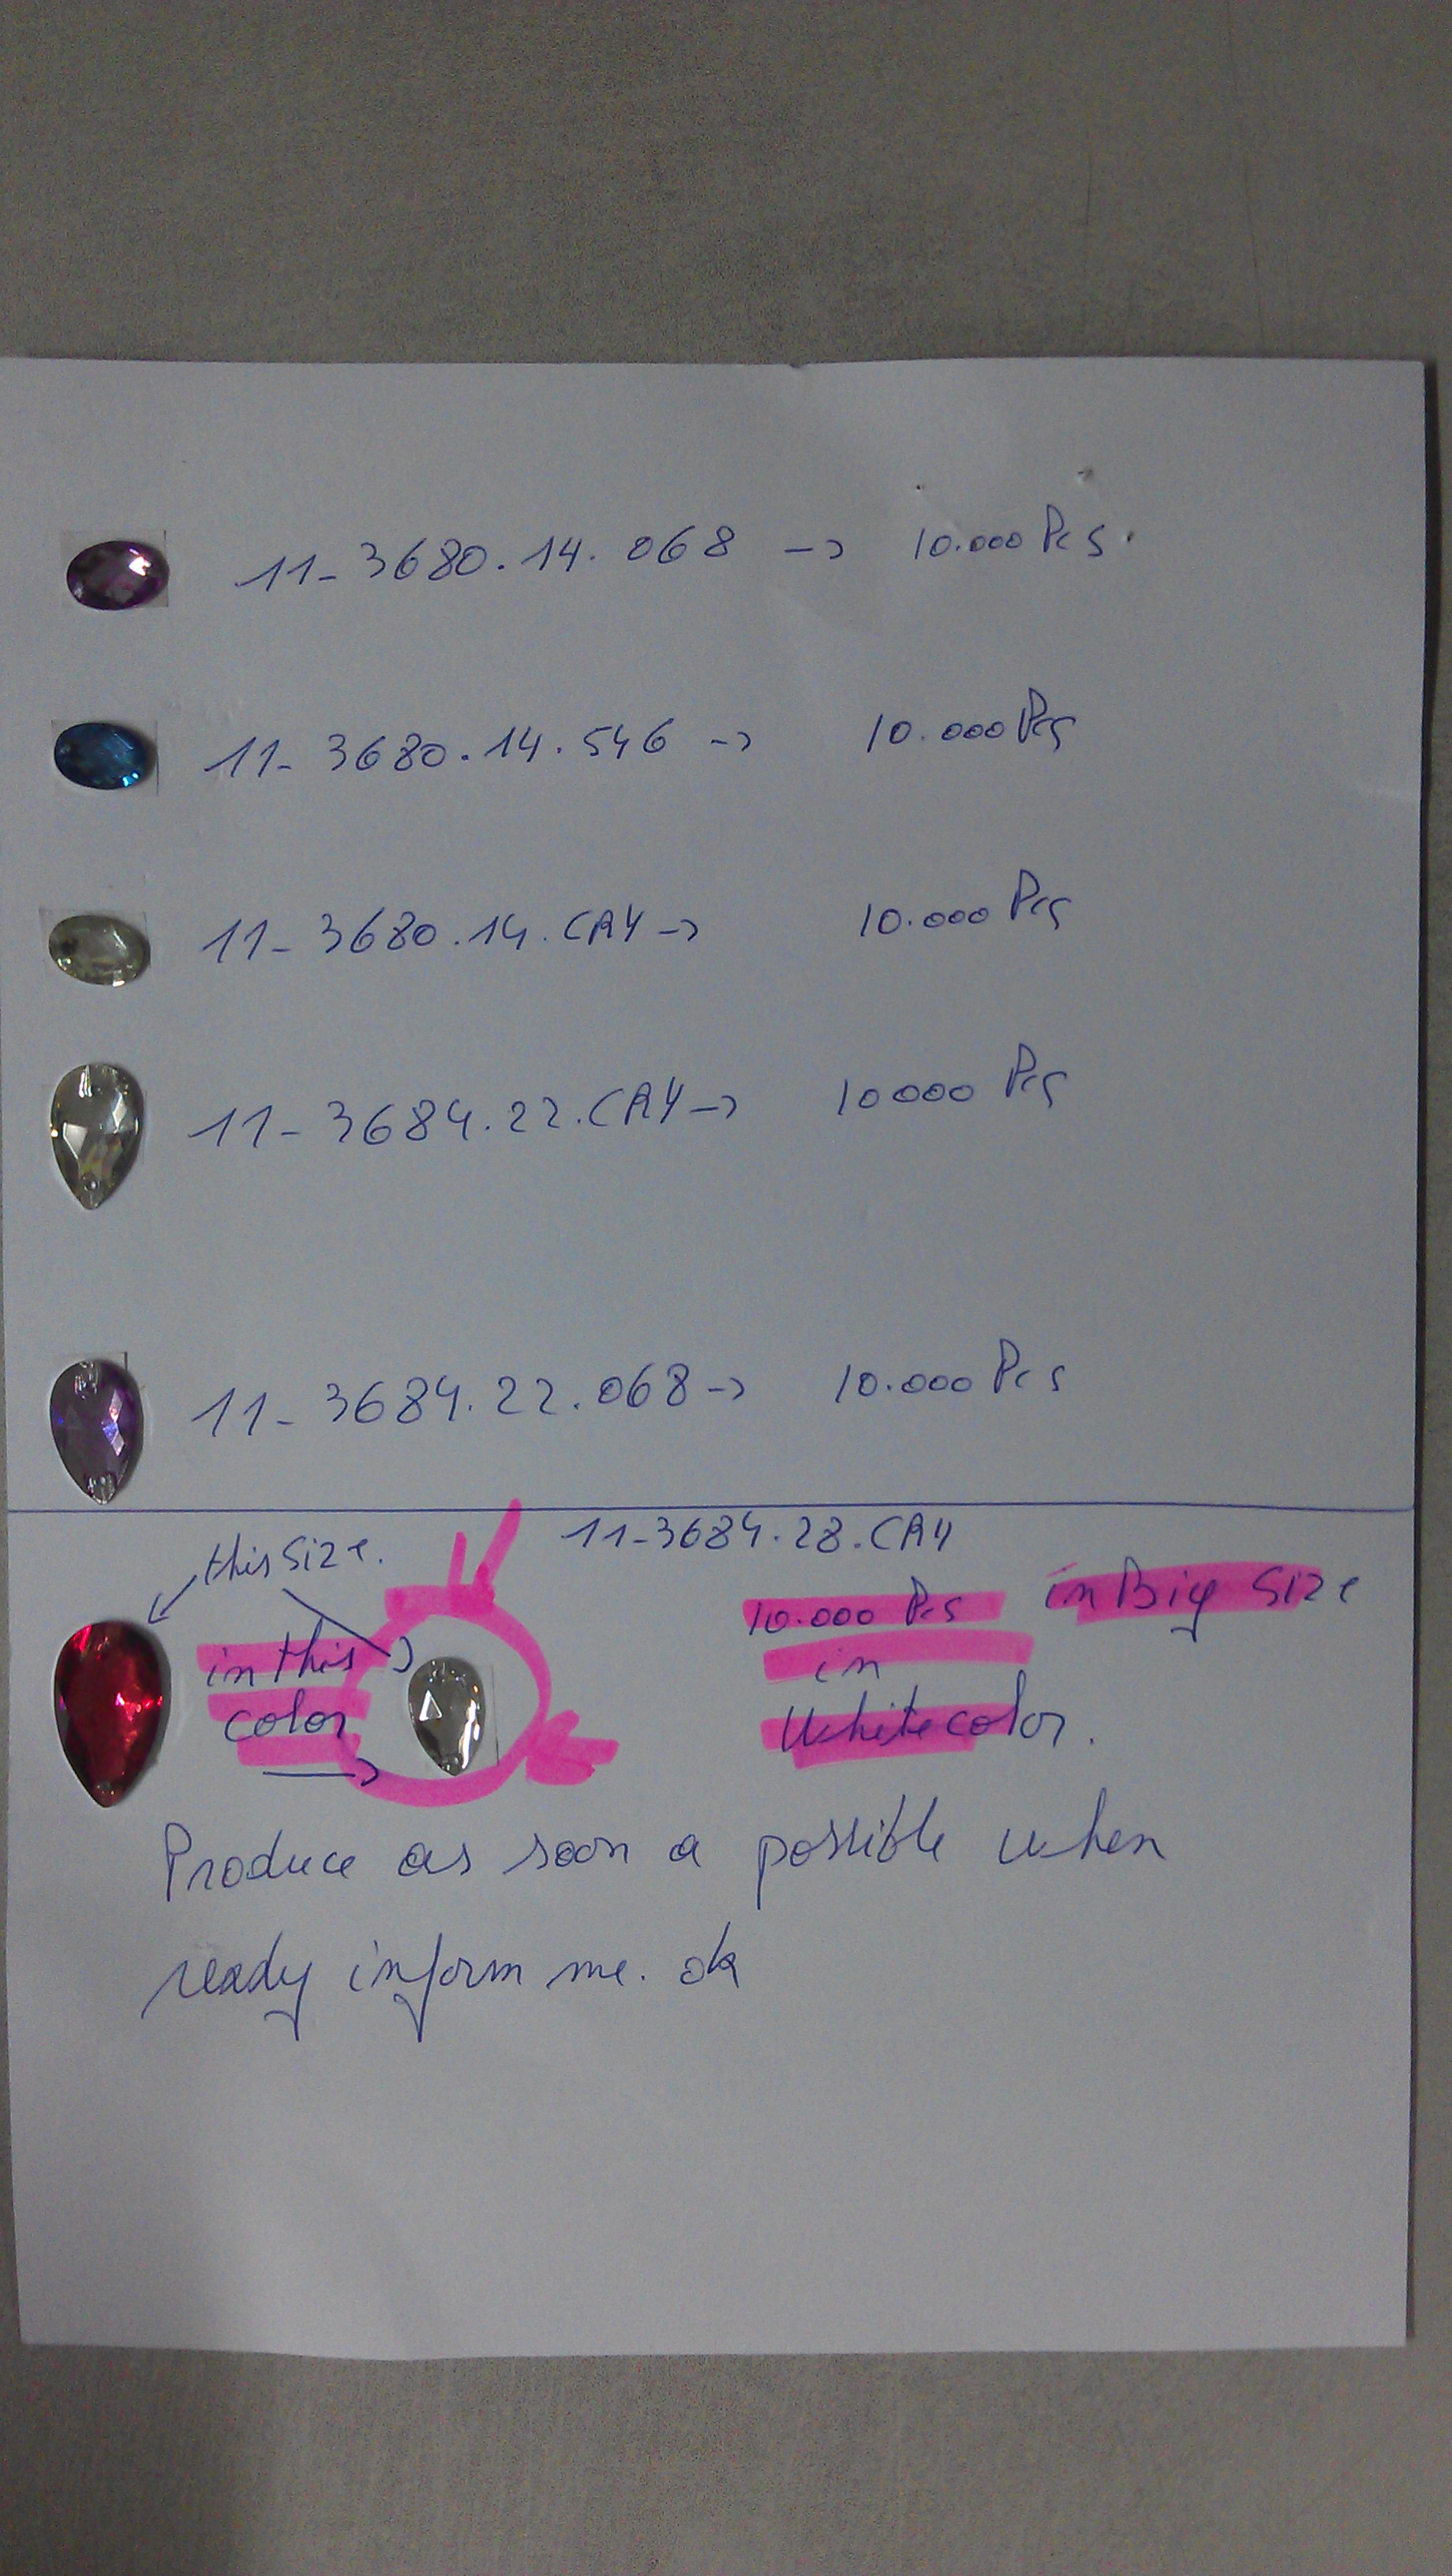 11-3680.14.068 → 10.000 Pcs.
11-3680.14.546 → 10.000 Pcs
11-3680.14.CAY → 10.000 Pcs
11-3684.22.CAY → 10000 Pcs
11-3684.22.068 → 10.000 Pcs
11-3684.28.CAY
this size.
in this
color
10.000 Pcs in Big size
in
White color.
Produce as soon a possible when
ready inform me. ok